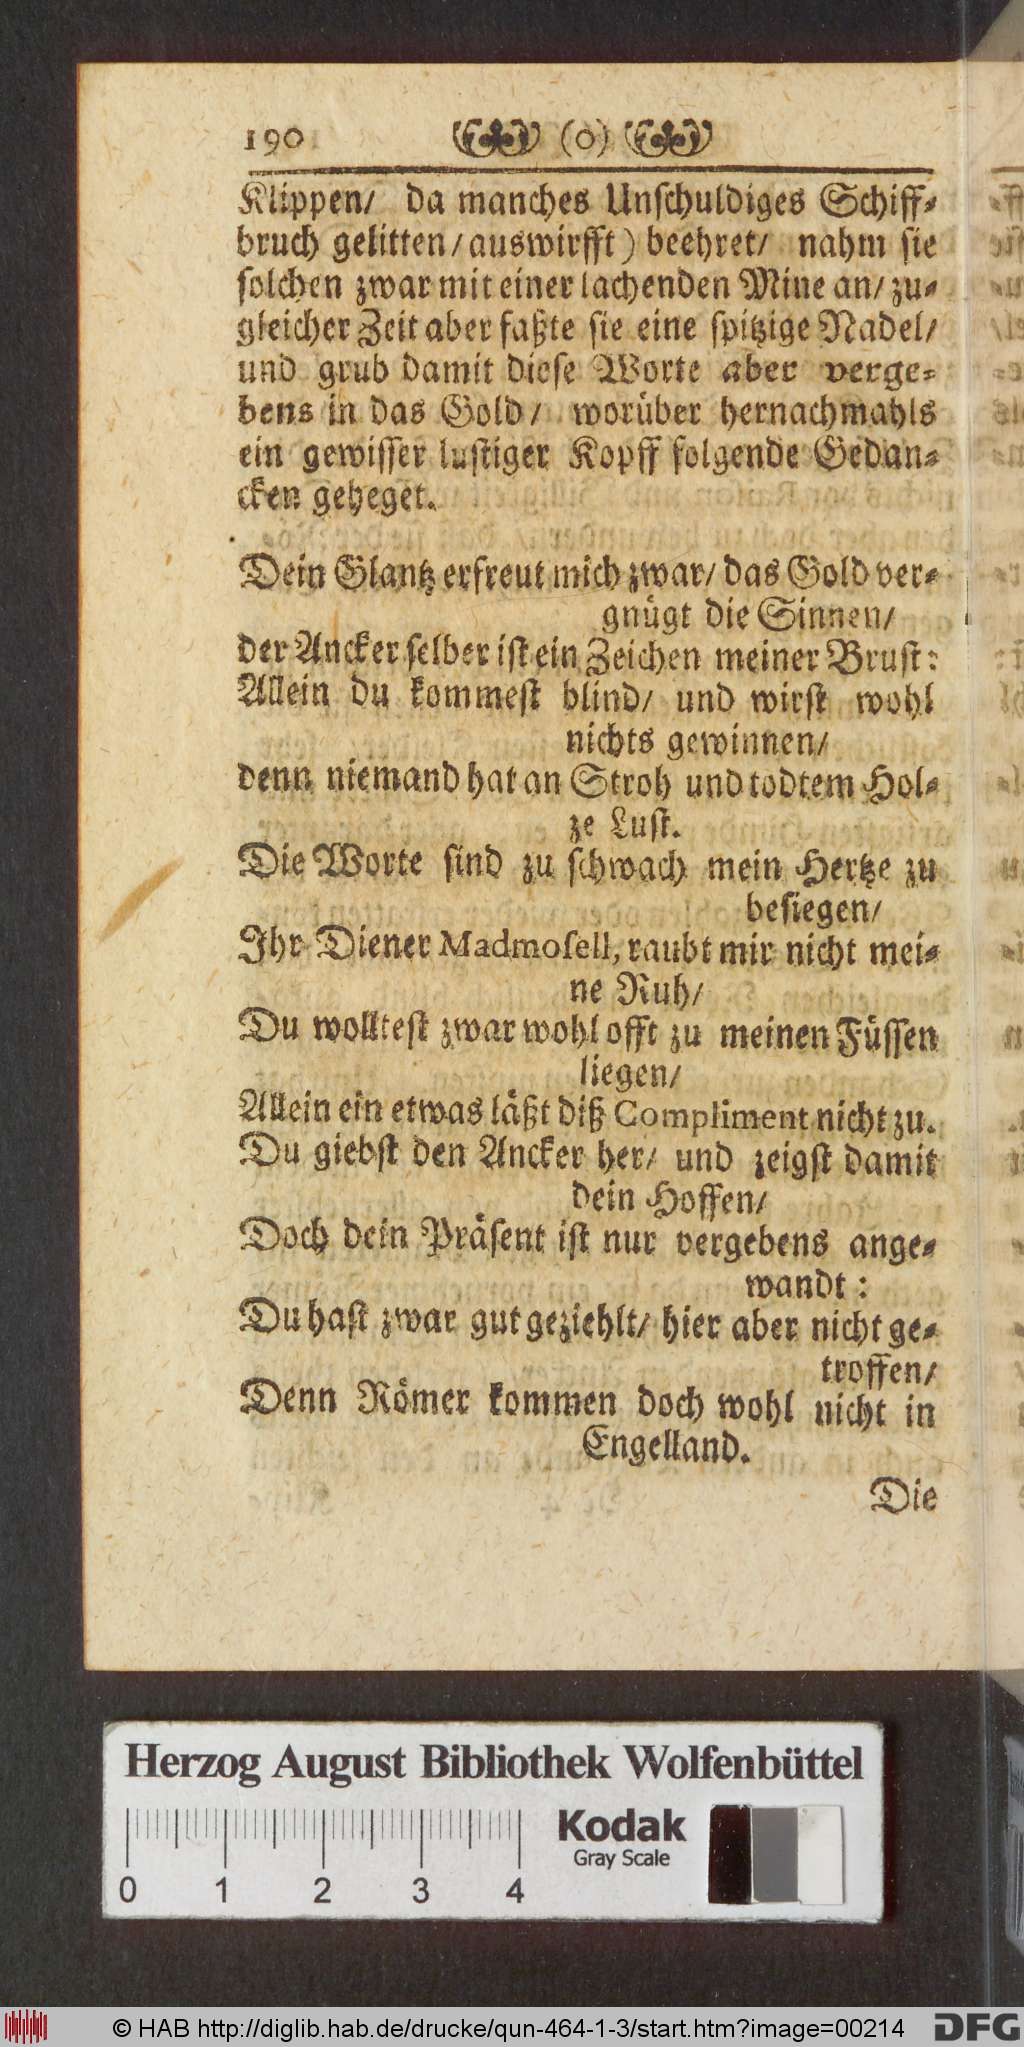 190 (0)
Klippen/ da manches Unschuldiges Schiff-
bruch gelitten/auswirfft) beehret/ nahm sie
solchen zwar mit einer lachenden Mine an/ zu-
gleicher Zeit aber faßte sie eine spitzige Nadel/
und grub damit diese Worte aber verge-
bens in das Gold/ worüber hernachmahls
ein gewisser lustiger Kopff folgende Gedan-
cken geheget.
Dein Glantz erfreut mich zwar/ das Gold ver-
gnügt die Sinnen/
der Ancker selber ist ein Zeichen meiner Brust:
Allein du kommest blind/ und wirst wohl
nichts gewinnen/
denn niemand hat an Stroh und todtem Hol-
ze Lust.
Die Worte sind zu schwach mein Hertze zu
besiegen/
Ihr Diener Madmosell, raubt mir nicht mei-
ne Ruh/
Du wolltest zwar wohl offt zu meinen Füssen
liegen/
Allein ein etwas läßt diß Compliment nicht zu.
Du giebst den Ancker her/ und zeigst damit
dein Hoffen/
Doch dein Präsent ist nur vergebens ange-
wandt:
Du hast zwar gut geziehlt/ hier aber nicht ge-
troffen/
Denn Römer kommen doch wohl nicht in
Engelland.
Die
Herzog August Bibliothek Wolfenbüttel
Kodak
Gray Scale
0 1 2 3 4
© HAB http://diglib.hab.de/drucke/qun-464-1-3/start.htm?image=00214
DFG